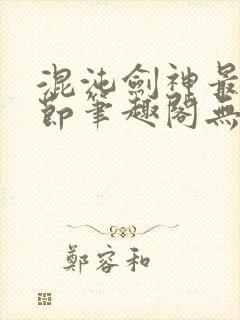 混沌劍神最
節筆趣閣無
鄭容和